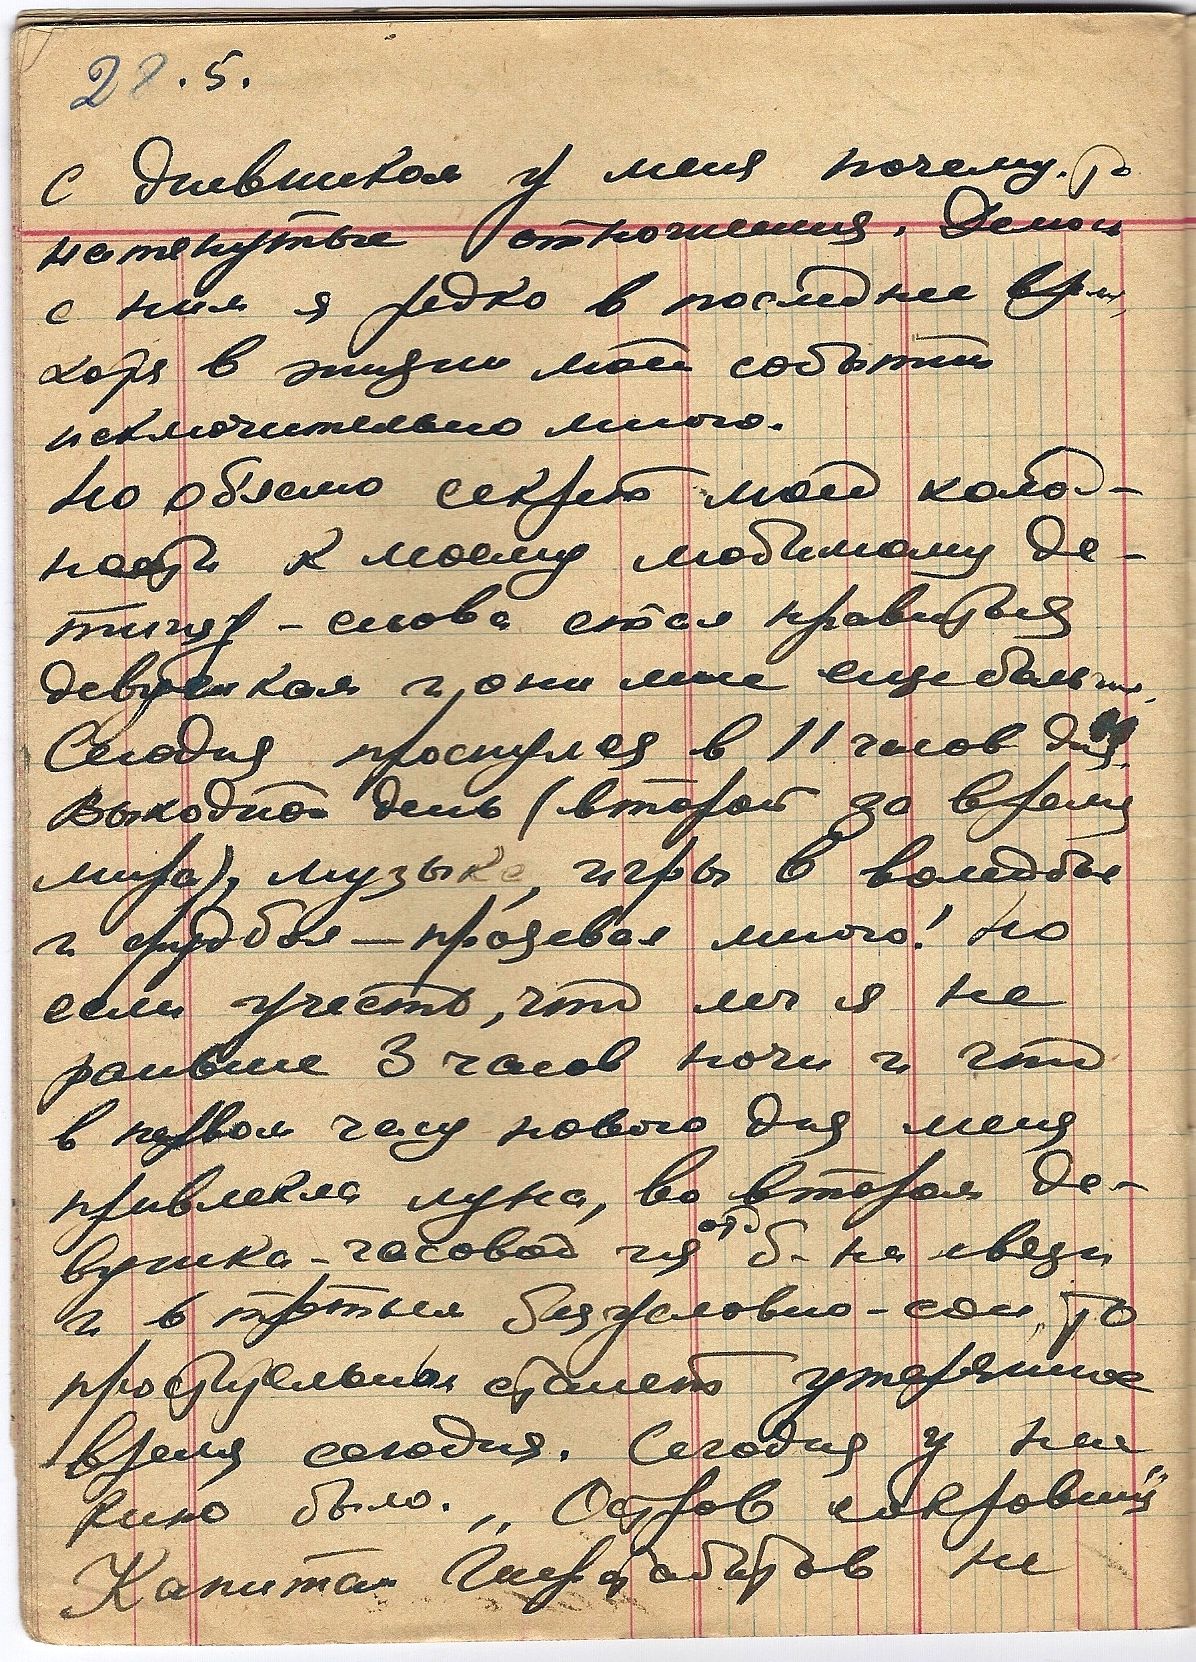 28.5.
С дневником у меня почему-то
натянутые отношения. Делюсь
с ним я редко в последнее время,
хотя в жизни моей событий
исключительно много.
Но объясню секрет моей холод-
ности к моему любимому де-
тищу – снова стал нравиться
девушкам и они мне еще больше.
Сегодня проснулся в 11 часов дня.
Выходной день (второй за время
мира), музыка, игры в волейбол
и футбол — прозевал много! Но
если учесть, что лег я не
раньше 3 часов ночи и что
в первом часу нового дня меня
привлекла луна, во втором де-
вушка-часовой из отд. б-на связи
и в третьем безусловно-сон, то
простительным станет утерянное
время сегодня. Сегодня у нас
кино было. „Остров сокровищ"
Капитан не